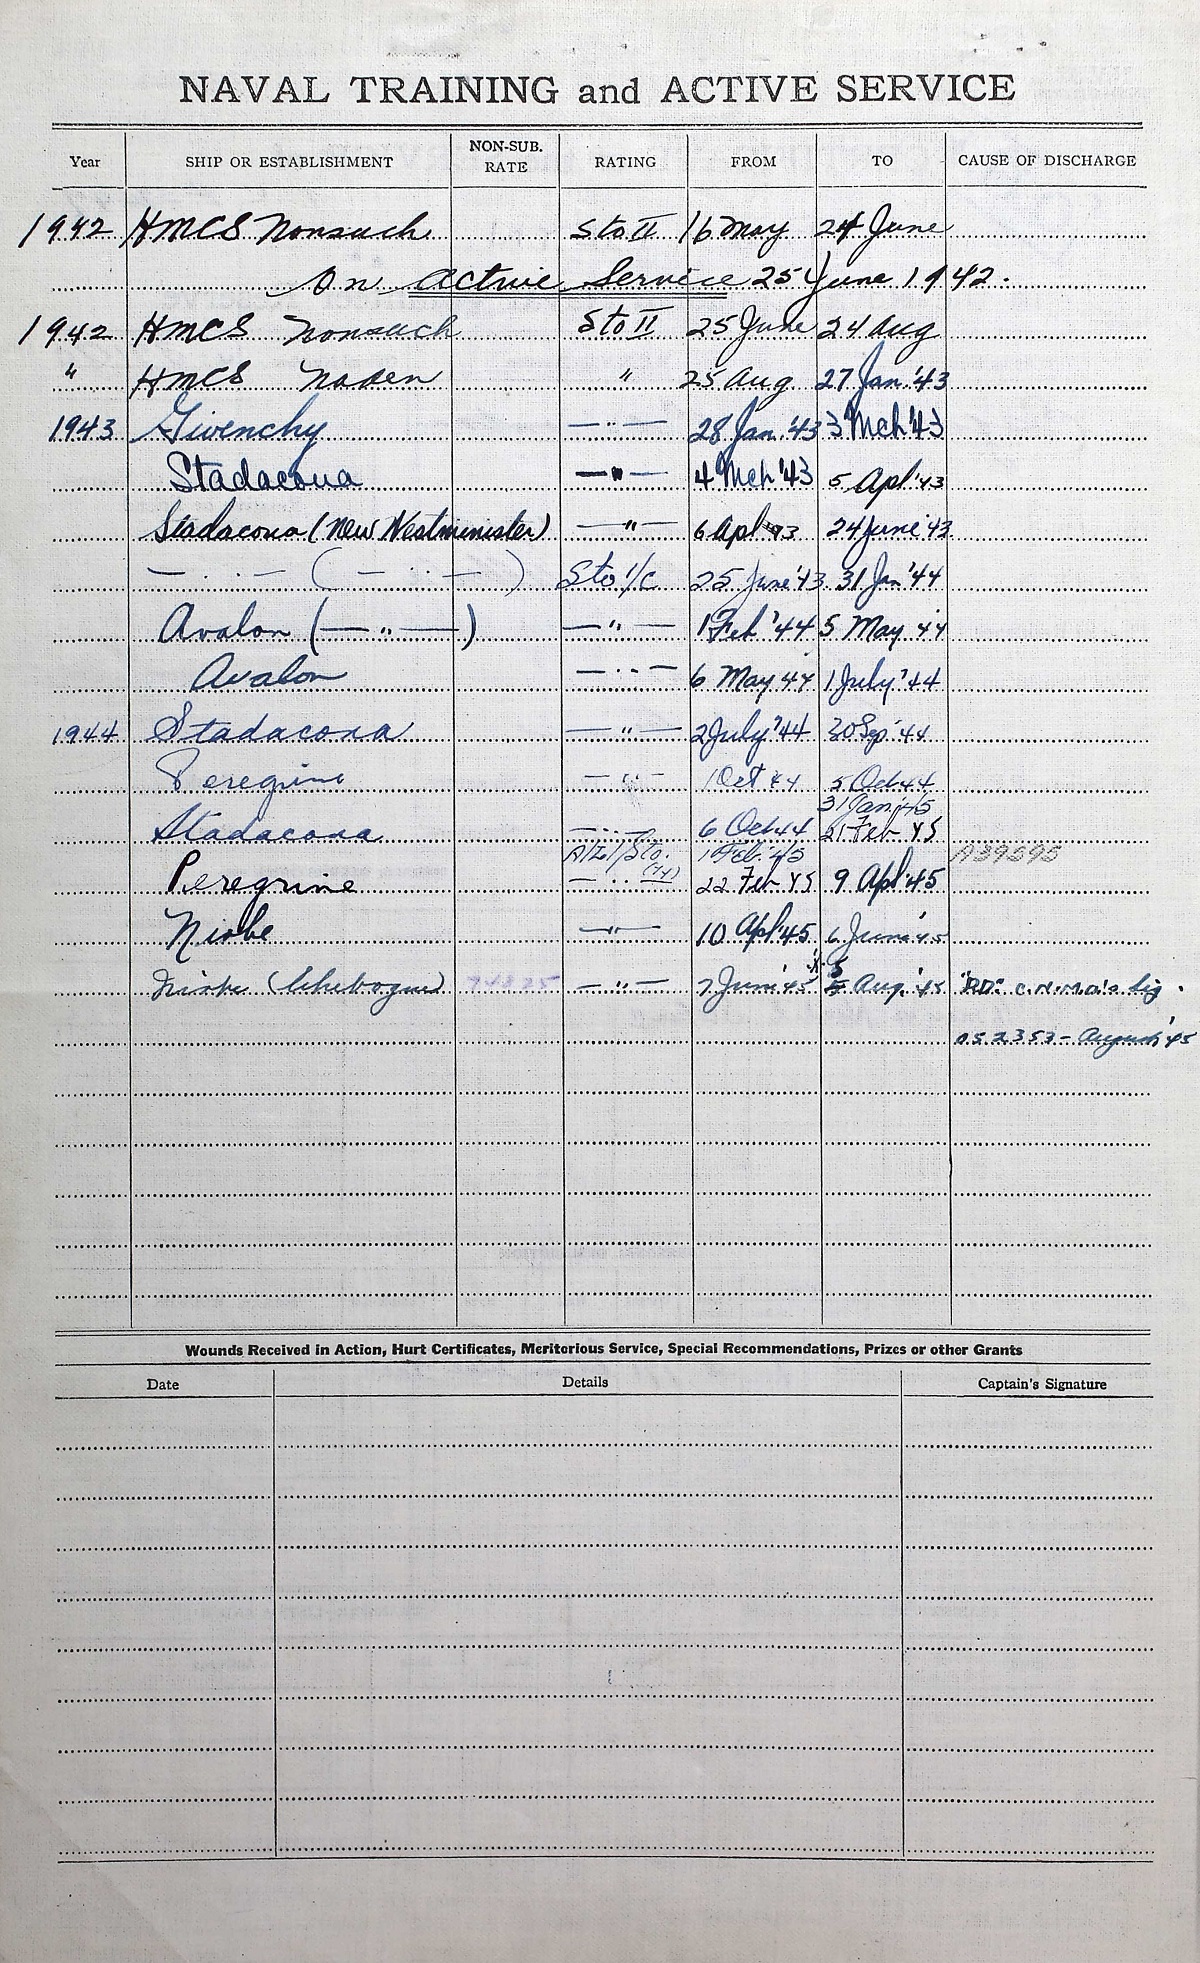 NAVAL TRAINING and ACTIVE SERVICE
Year SHIP OR ESTABLISHMENT NON-SUB. RATE RATING FROM TO CAUSE OF DISCHARGE
1942 HMCS Nonsuch Sto II 16 May 24 June
On Active Service 25 June 1942.
1942 HMCS Nonsuch Sto II 25 June 24 Aug
" HMCS Naden " 25 Aug 27 Jan '43
1943 Givenchy —"— 28 Jan. '43 3 Mch '43
Stadacona —"— 4 Mch '43 5 Apl '43
Stadacona (New Westminister) —"— 6 Apl '43 24 June '43
— " — ( — " — ) Sto 1/C 25 June '43 31 Jan '44
Avalon (— " —) —"— 1 Feb '44 5 May '44
Avalon —"— 6 May 44 1 July '44
1944 Stadacona —"— 2 July '44 30 Sep '44
Peregrine —"— 1 Oct 44 5 Oct 44
31 Jan '45
Stadacona —"— 6 Oct 44 21 Feb 45
A/L/Sto. 1 Feb. '45 A39595
Peregrine —"— 22 Feb 45 9 Apl '45
Niobe —"— 10 Apl '45 6 June '45
Niobe (Chebogue) 74325 —"— 7 June '45 5 Aug. '45 "RD" C.N.M.O's Sig.
052353 - August '45
Wounds Received in Action, Hurt Certificates, Meritorious Service, Special Recommendations, Prizes or other Grants
Date Details Captain's Signature